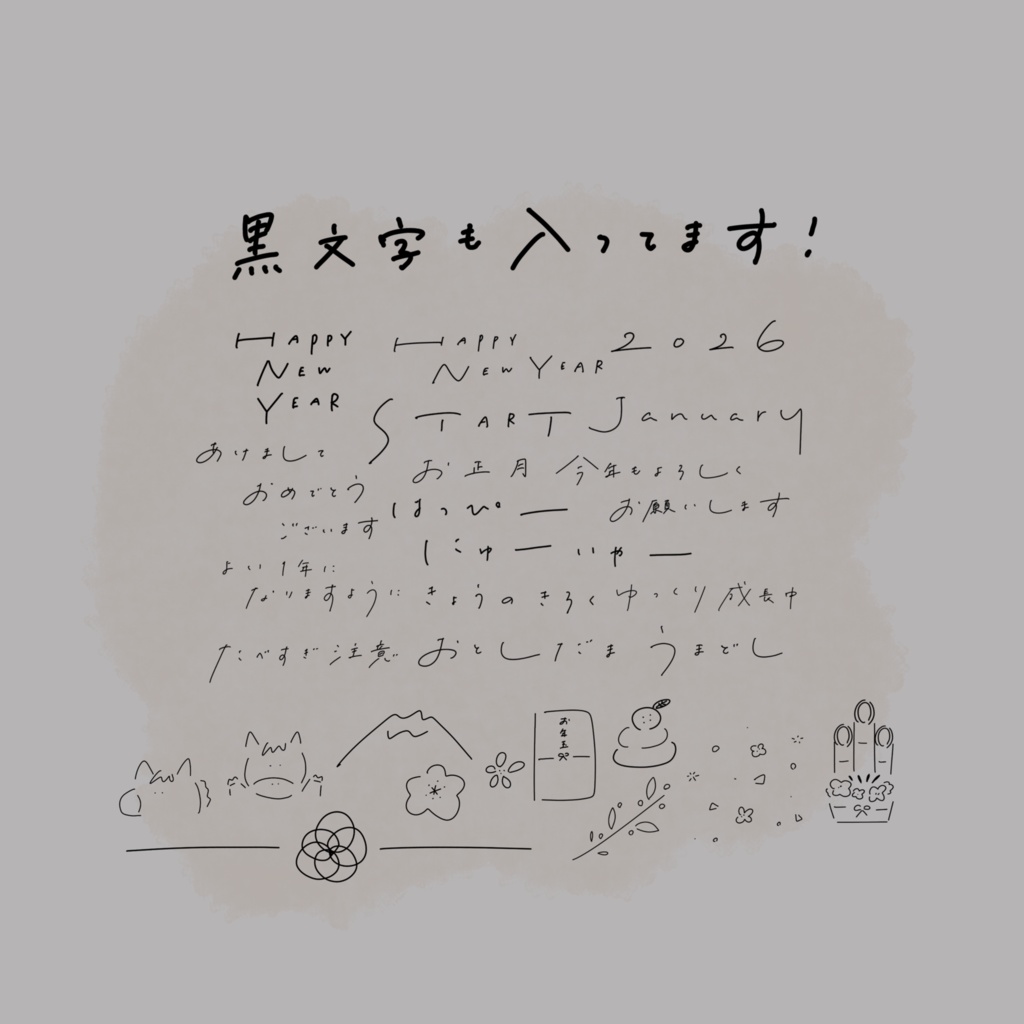 黒文字も入ってます!
HAPPY
NEW
YEAR
HAPPY
NEW YEAR
2026
START
January
あけまして
おめでとう
ございます
お正月
今年もよろしく
お願いします
はっぴー
にゅーいやー
よい1年に
なりますように
きょうのきろく
ゆっくり成長中
たべすぎ注意
おとしだま
うまどし
お年玉